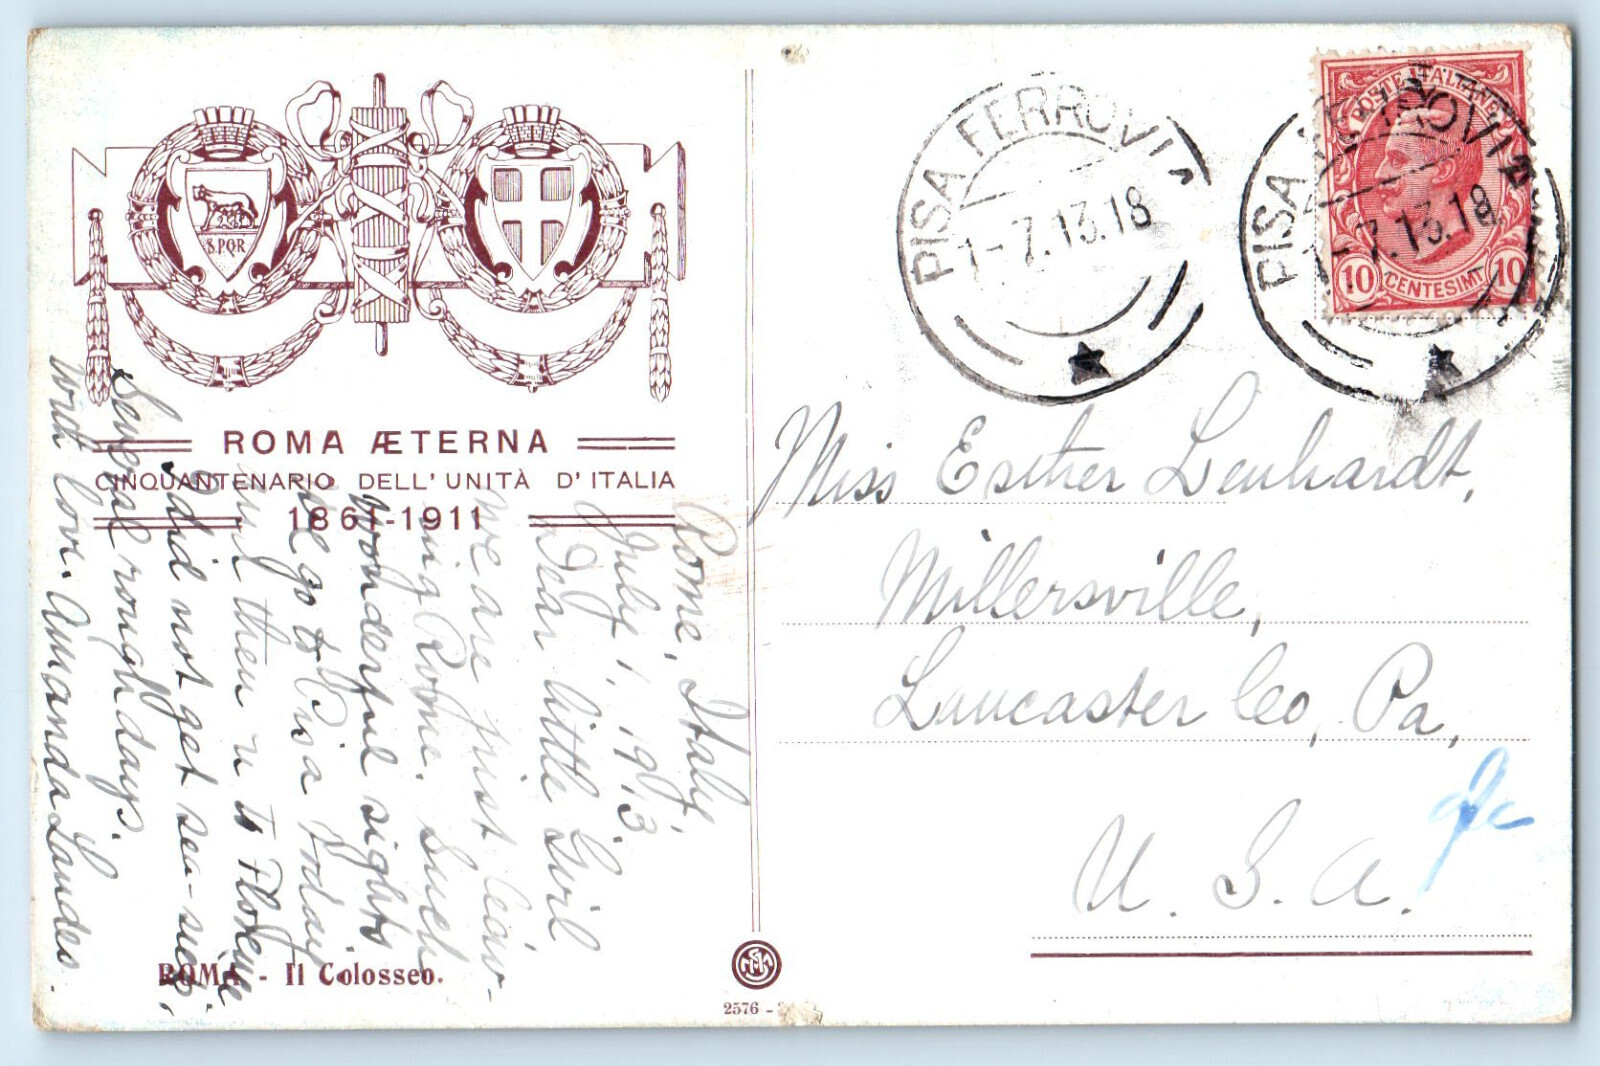 S.P.Q.R
ROMA ÆTERNA
CINQUANTENARIO DELL'UNITÀ D'ITALIA
1861-1911
Rome, Italy,
July 1, 1913.
Dear little Girl
We are just leav-
ing Rome. Such
wonderful sights
We go to Pisa today
and then to Florence
I did not get sea-sick,
Several rough days.
With love. Amanda Landes.
ROMA - Il Colosseo.
2576 -
PISA FERROVIA
1-7.13.18
PISA FERROVIA
1-7.13.18
POSTE ITALIANE
10 CENTESIMI 10
Miss Esther Lenhardt,
Millersville,
Lancaster Co, Pa,
U. S. A.